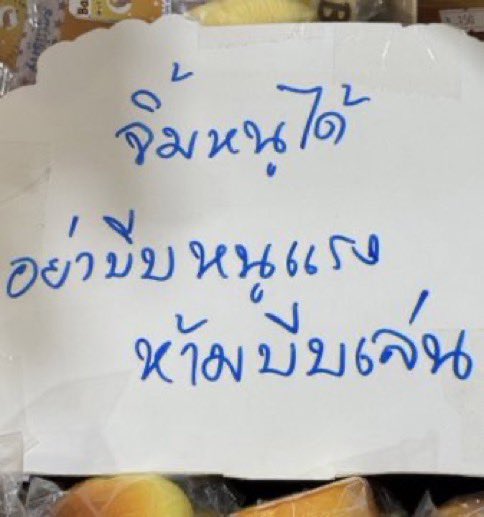 จิ้มหนูได้
อย่าบีบหนูแรง
ห้ามบีบเล่น